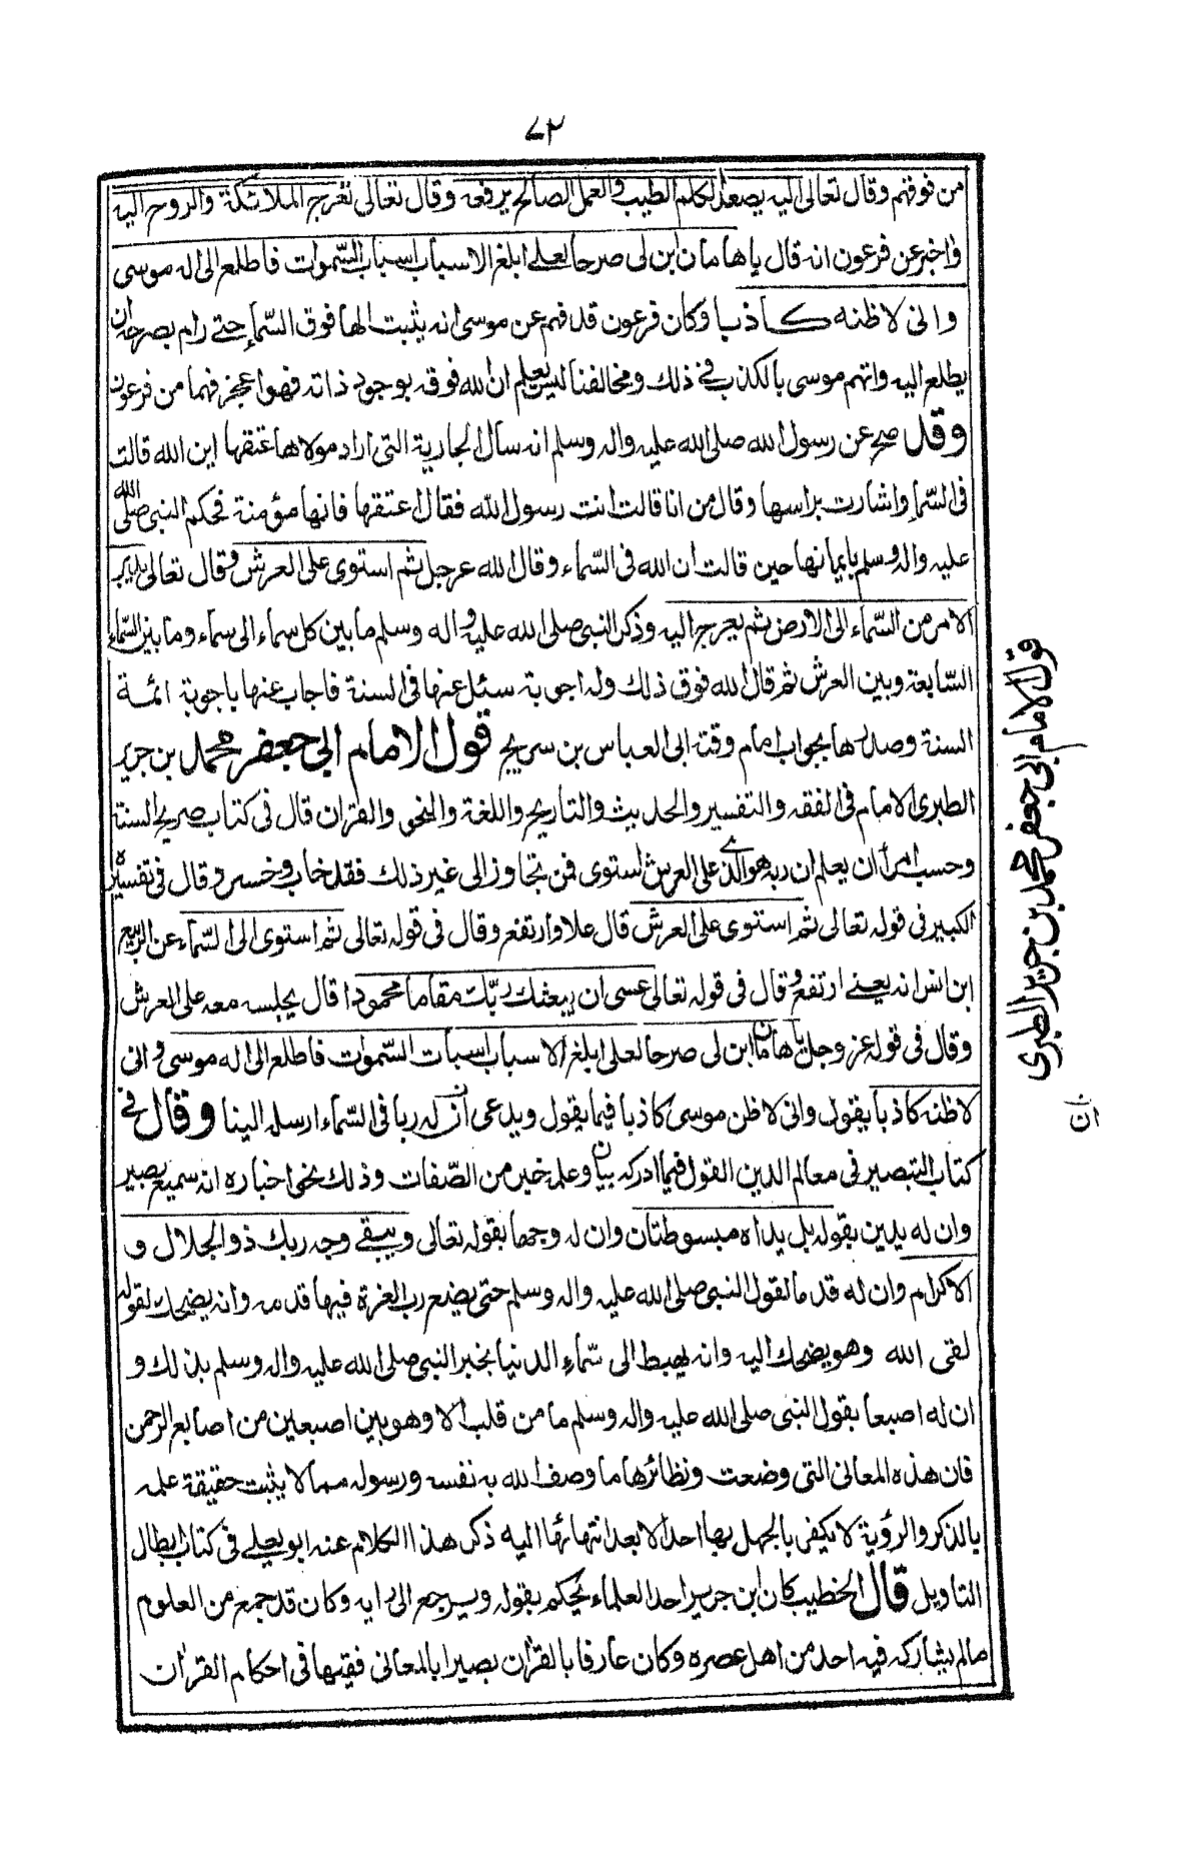 ٧٢
من فوقهم وقال تعالى اليه يصعد الكلم الطيب والعمل الصالح يرفعه وقال تعالى تعرج الملائكة والروح اليه
واخبر عن فرعون انه قال ياهامان ابن لى صرحا لعلے ابلغ الاسباب اسباب السّموات فاطلع الى اله موسى
وانى لاظنه كاذبا وكان فرعون قد فهم عن موسى انه يثبت الها فوق السّماء حتے رام بصرحه ان
يطلع اليه واتهم موسى بالكذب فے ذلك ومخالفنا ليس يعلم ان الله فوقه بوجود ذاته فهو اعجز فهما من فرعون
وقد صح عن رسول الله صلى الله عليه واله وسلم انه سأل الجارية التى اراد مولاها عتقها اين الله قالت
فى السّماء واشارت براسها وقال من انا قالت انت رسول الله فقال اعتقها فانها مؤمنة فحكم النبى صلى الله
عليه واله وسلم بايمانها حين قالت ان الله فى السّماء وقال الله عز جل ثم استوى على العرش وقال تعالى يدبر
الامر من السّماء الى الارض ثم يعرج اليه وذكر النبى صلى الله عليه واله وسلم ما بين كل سماء الى سماء وما بين السّماء
السّابعة وبين العرش ثم قال الله فوق ذلك وله اجوبة سئل عنها فى السنة فاجاب عنها باجوبة ائمة
السنة وصدرها بجواب امام وقته ابى العباس بن سريج قول الامام ابى جعفر محمد بن جرير
الطبرى الامام فى الفقه والتفسير والحديث والتاريخ واللغة والنحو والقران قال فى كتاب صريح السنة
وحسب امرأ ان يعلم ان ربه هو الذے على العرش استوى فمن تجاوز الى غير ذلك فقد خاب وخسر وقال فى تفسيره
الكبير فى قوله تعالى ثم استوى على العرش قال علا وارتفع وقال فى قوله تعالى ثم استوى الى السّماء عن الربيع
ابن انس انه يعنے ارتفع وقال فى قوله تعالى عسى ان يبعثك ربّك مقاما محمودا قال يجلسه معه على العرش
وقال فى قوله عز وجل ياهامان ابن لى صرحا لعلى ابلغ الاسباب اسباب السّموات فاطلع الى اله موسى وانى
لاظنه كاذبا يقول وانى لاظن موسى كاذبا فيما يقول ويدعى ان له ربا فى السّماء ارسله الينا وقال فے
كتاب التبصير فى معالم الدين القول فيما ادركه بيان وعلم خبر من الصّفات وذلك نحو اخباره انه سميع بصير
وان له يدين بقوله بل يداه مبسوطتان وان له وجها بقوله تعالى ويبقے وجه ربك ذو الجلال و
الاكرام وان له قدما لقول النبى صلى الله عليه واله وسلم حتى يضع رب العزة فيها قدمه وانه يضحك لقوله
لقى الله وهو يضحك اليه وانه يهبط الى سّماء الدنيا بخبر النبى صلى الله عليه واله وسلم بذلك و
ان له اصبعا بقول النبى صلى الله عليه واله وسلم ما من قلب الا وهو بين اصبعين من اصابع الرحمن
فان هذه المعانى التى وضعت ونظائرها ما وصف الله به نفسه ورسوله مما لا يثبت حقيقة علمه
بالذكر والرؤية لا يكفى بالجهل بها احدا الا بعد انتهائها اليه ذكر هذا الكلام عنه ابو يعلے فى كتاب ابطال
التاويل قال الخطيب كان ابن جرير احد العلماء يحكم بقوله ويرجع الى رايه وكان قد جمع من العلوم
مالم يشاركه فيه احد من اهل عصره وكان عارفا بالقرأن بصيرا بالمعانى فقيها فى احكام القرأن
قول الامام ابى جعفر محمد بن جرير الطبرى
ان